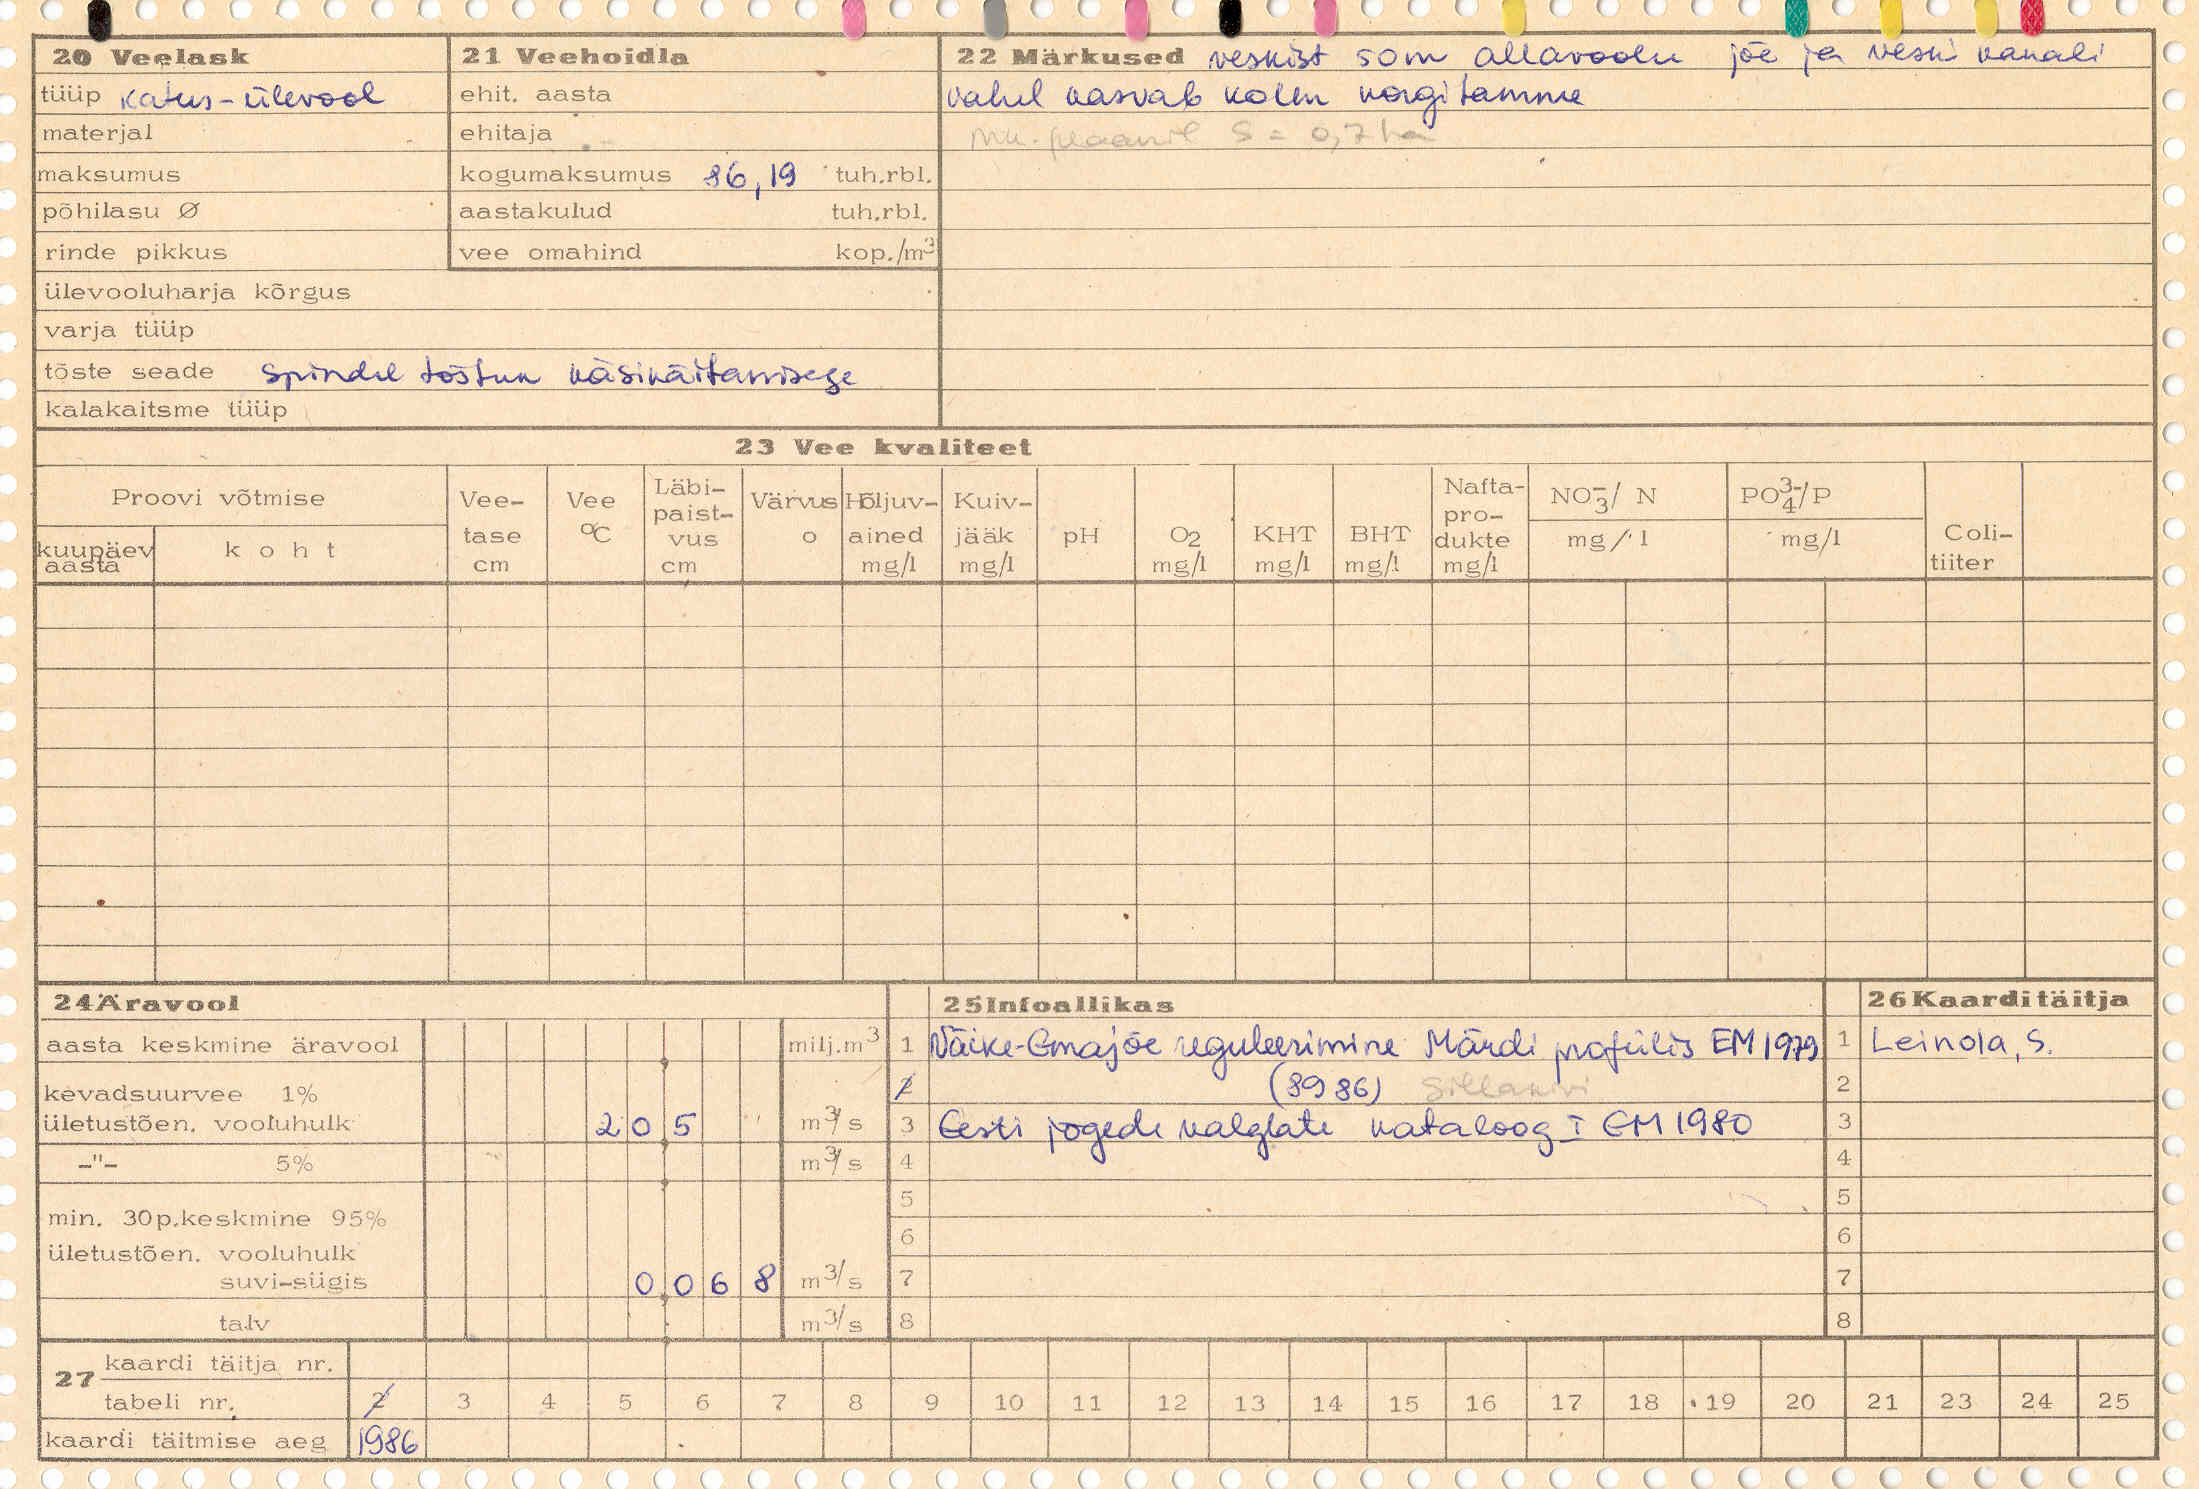 20 Veelask
tüüp katus-ülevool
materjal
maksumus
põhilasu Ø
rinde pikkus
ülevooluharja kõrgus
varja tüüp
tõste seade spindel tõstuk käsikäitamisega
kalakaitsme tüüp
21 Veehoidla
ehit. aasta
ehitaja
kogumaksumus 86,19 tuh.rbl.
aastakulud tuh.rbl.
vee omahind kop./m³
22 Märkused veskist 50m allavoolu jõe ja veski kanali
vahel kasvab kolm korgitamme
plaanil S = 0,7 ha
23 Vee kvaliteet
Proovi võtmise
kuupäev aasta
koht
Vee-tase cm
Vee °C
Läbi-paist-vus cm
Värvus o
Hõljuv-ained mg/l
Kuiv-jääk mg/l
pH
O2 mg/l
KHT mg/l
BHT mg/l
Nafta-pro-dukte mg/l
NO3⁻/ N mg/l
PO4³⁻/P mg/l
Coli-tiiter
24 Äravool
aasta keskmine äravool milj.m³
kevadsuurvee 1%
ületustõen. vooluhulk 205 m³/s
-"- 5% m³/s
min. 30p.keskmine 95%
ületustõen. vooluhulk
suvi-sügis 0068 m³/s
talv m³/s
25 Infoallikas
1 Väike-Emajõe reguleerimine Märdi profiilis EM 1979
2 (8986) Sillakivi
3 Eesti jõgede valglate kataloog I EM 1980
4
5
6
7
8
26 Kaardi täitja
1 Leinola, S.
2
3
4
5
6
7
8
27 kaardi täitja nr.
tabeli nr. 2 3 4 5 6 7 8 9 10 11 12 13 14 15 16 17 18 19 20 21 23 24 25
kaardi täitmise aeg 1986